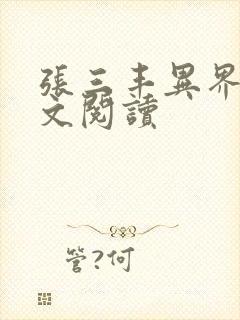 張三丰異界
文閱讀
管?何